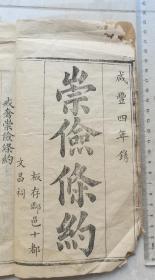 咸豐四年鐫
崇儉條約
板存鄢邑十都
文昌祠
戒奢崇儉條約